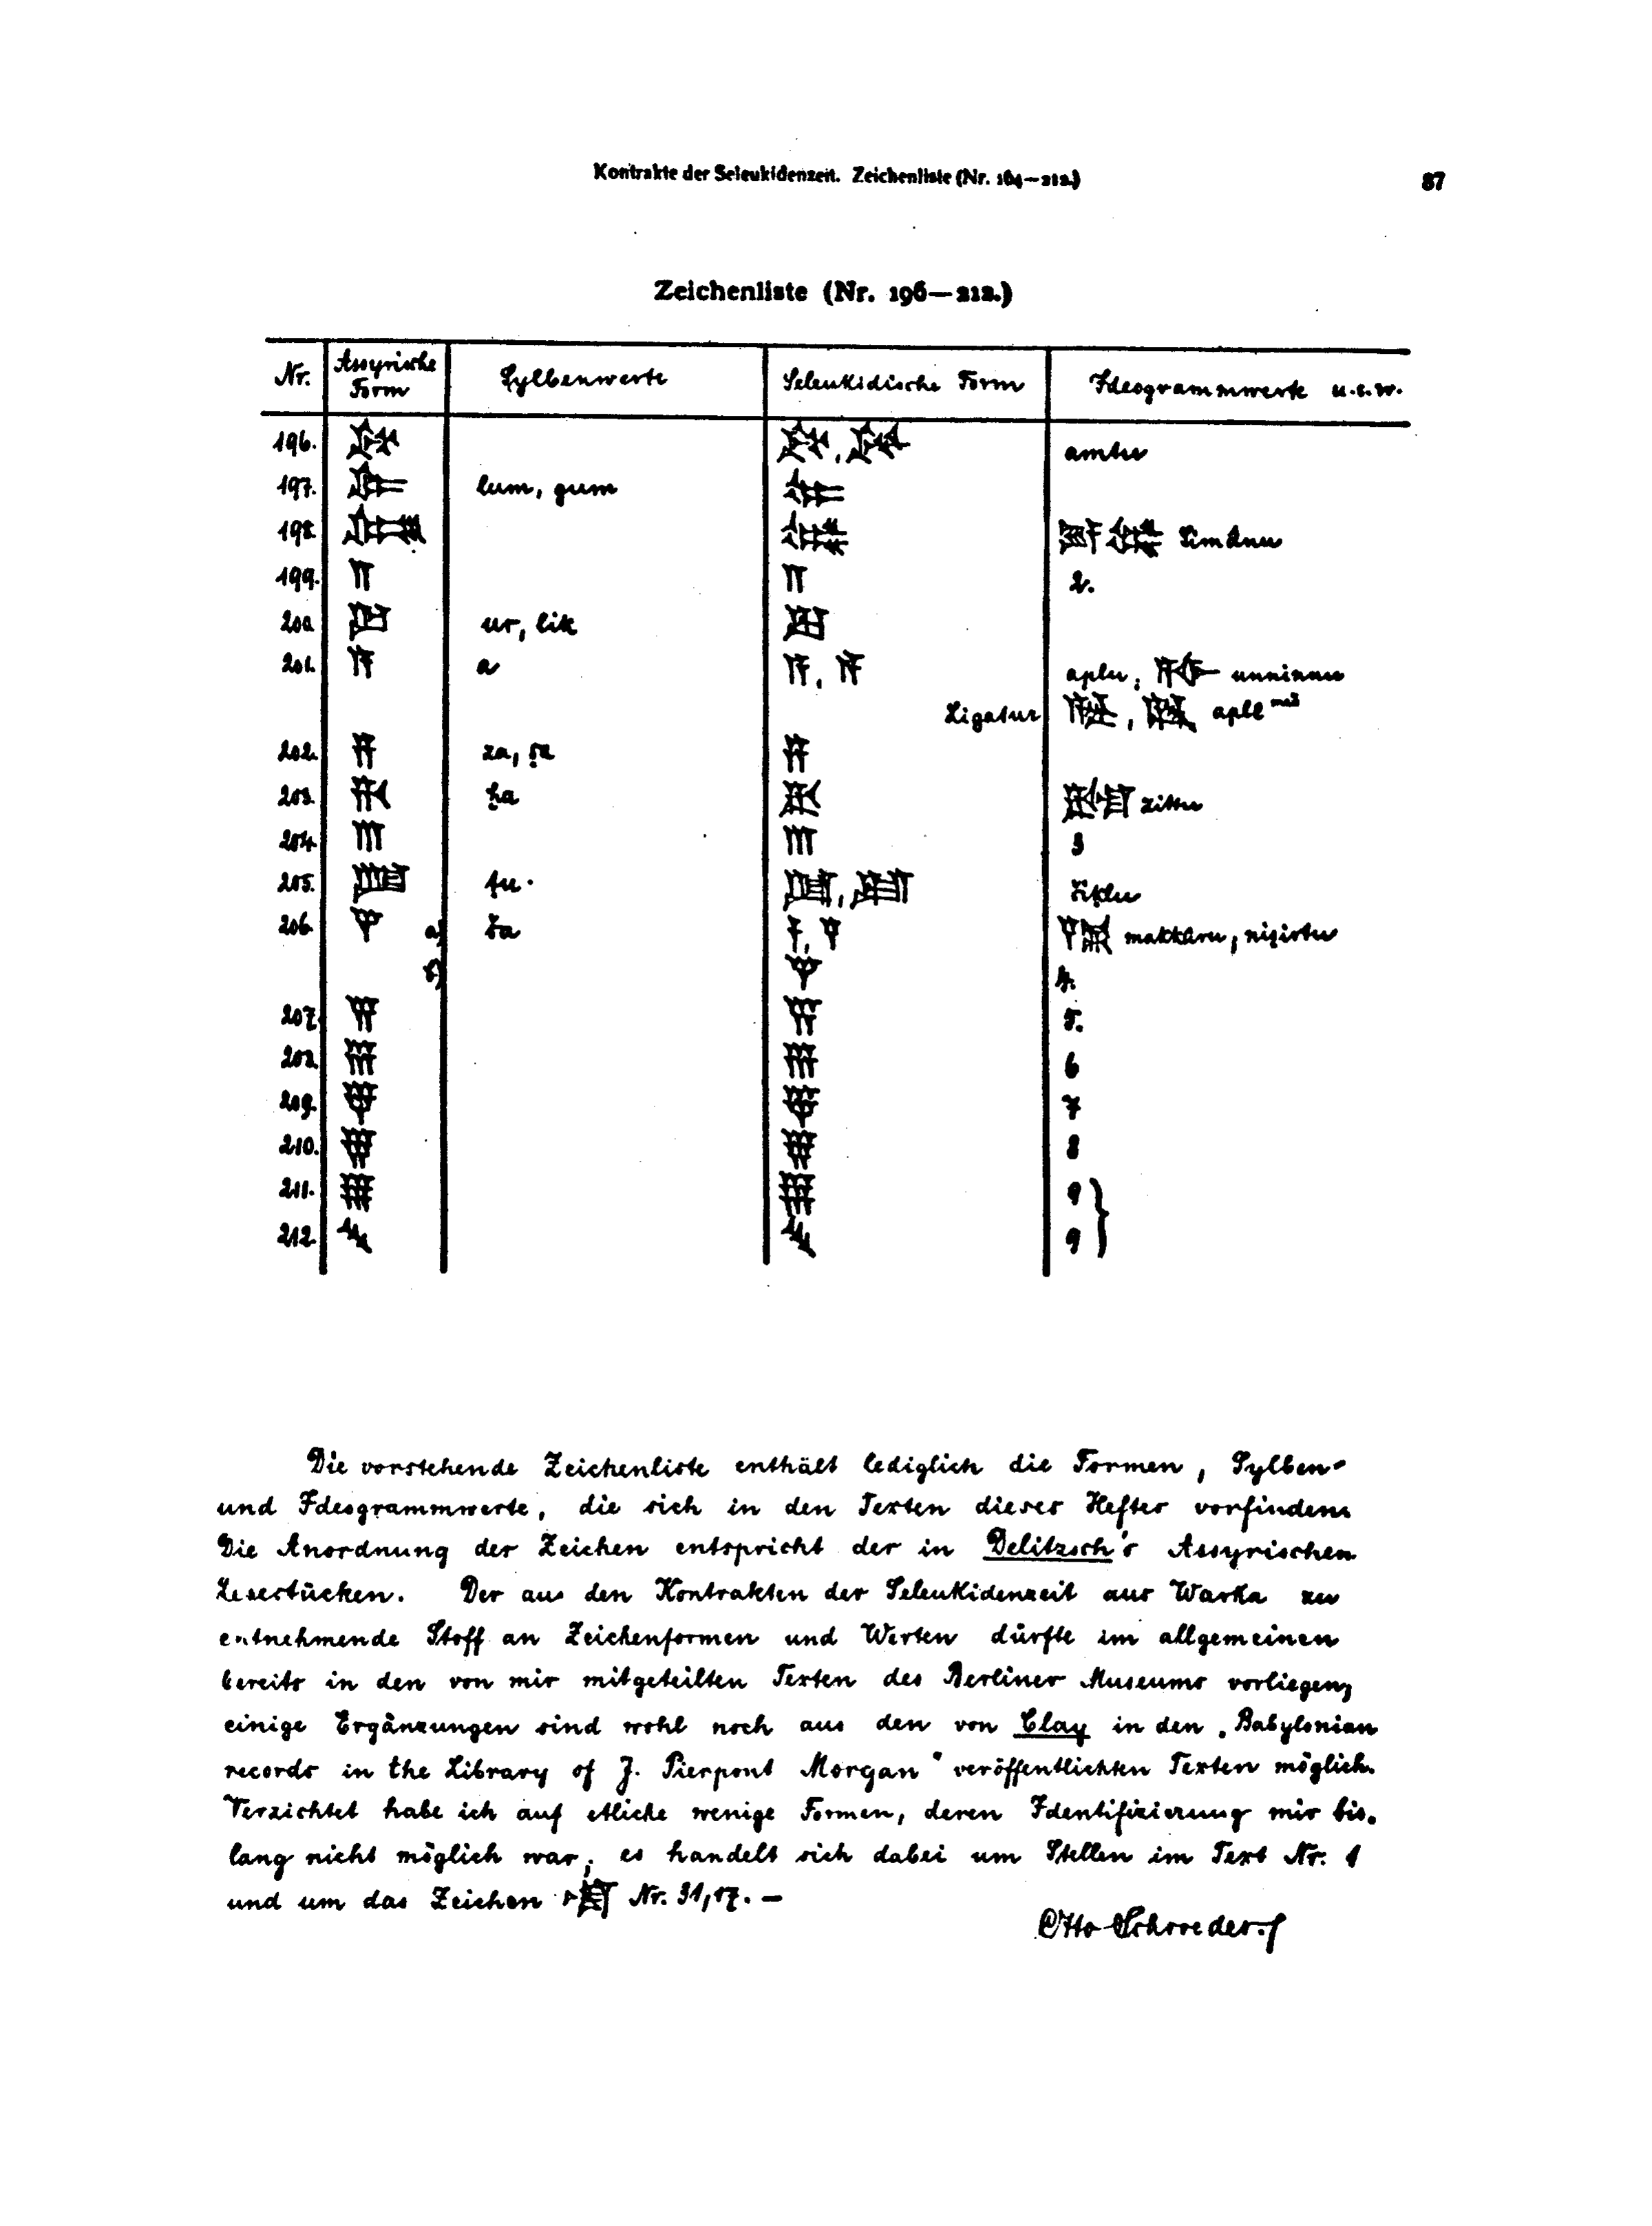 Kontrakte der Seleukidenzeit. Zeichenliste (Nr. 164—212.) 87
Zeichenliste (Nr. 196—212.)
Nr. Assyrische Form Sylbenwerte Seleukidische Form Ideogrammwerte u.s.w.
196. amtu
197. lum, gum
198. Simânu
199. 2.
200. ur, lik
201. a aplu; unninnu
Ligatur aplê meš
202. za, ṣa
203. ḫa zittu
204. 3
205. ṭu. šiḳlu
206. a) ša makkûru, niṣirtu
b) 4.
207. 5.
208. 6
209. 7
210. 8
211. 9
212. 9
Die vorstehende Zeichenliste enthält lediglich die Formen, Sylben-
und Ideogrammwerte, die sich in den Texten dieses Heftes vorfinden.
Die Anordnung der Zeichen entspricht der in Delitzsch's Assyrischen
Lesestücken. Der aus den Kontrakten der Seleukidenzeit aus Warka zu
entnehmende Stoff an Zeichenformen und Werten dürfte im allgemeinen
bereits in den von mir mitgeteilten Texten des Berliner Museums vorliegen;
einige Ergänzungen sind wohl noch aus den von Clay in den „Babylonian
records in the Library of J. Pierpont Morgan“ veröffentlichten Texten möglich.
Verzichtet habe ich auf etliche wenige Formen, deren Identifizierung mir bis-
lang nicht möglich war; es handelt sich dabei um Stellen im Text Nr. 1
und um das Zeichen Nr. 31,17. —
Otto Schroeder.